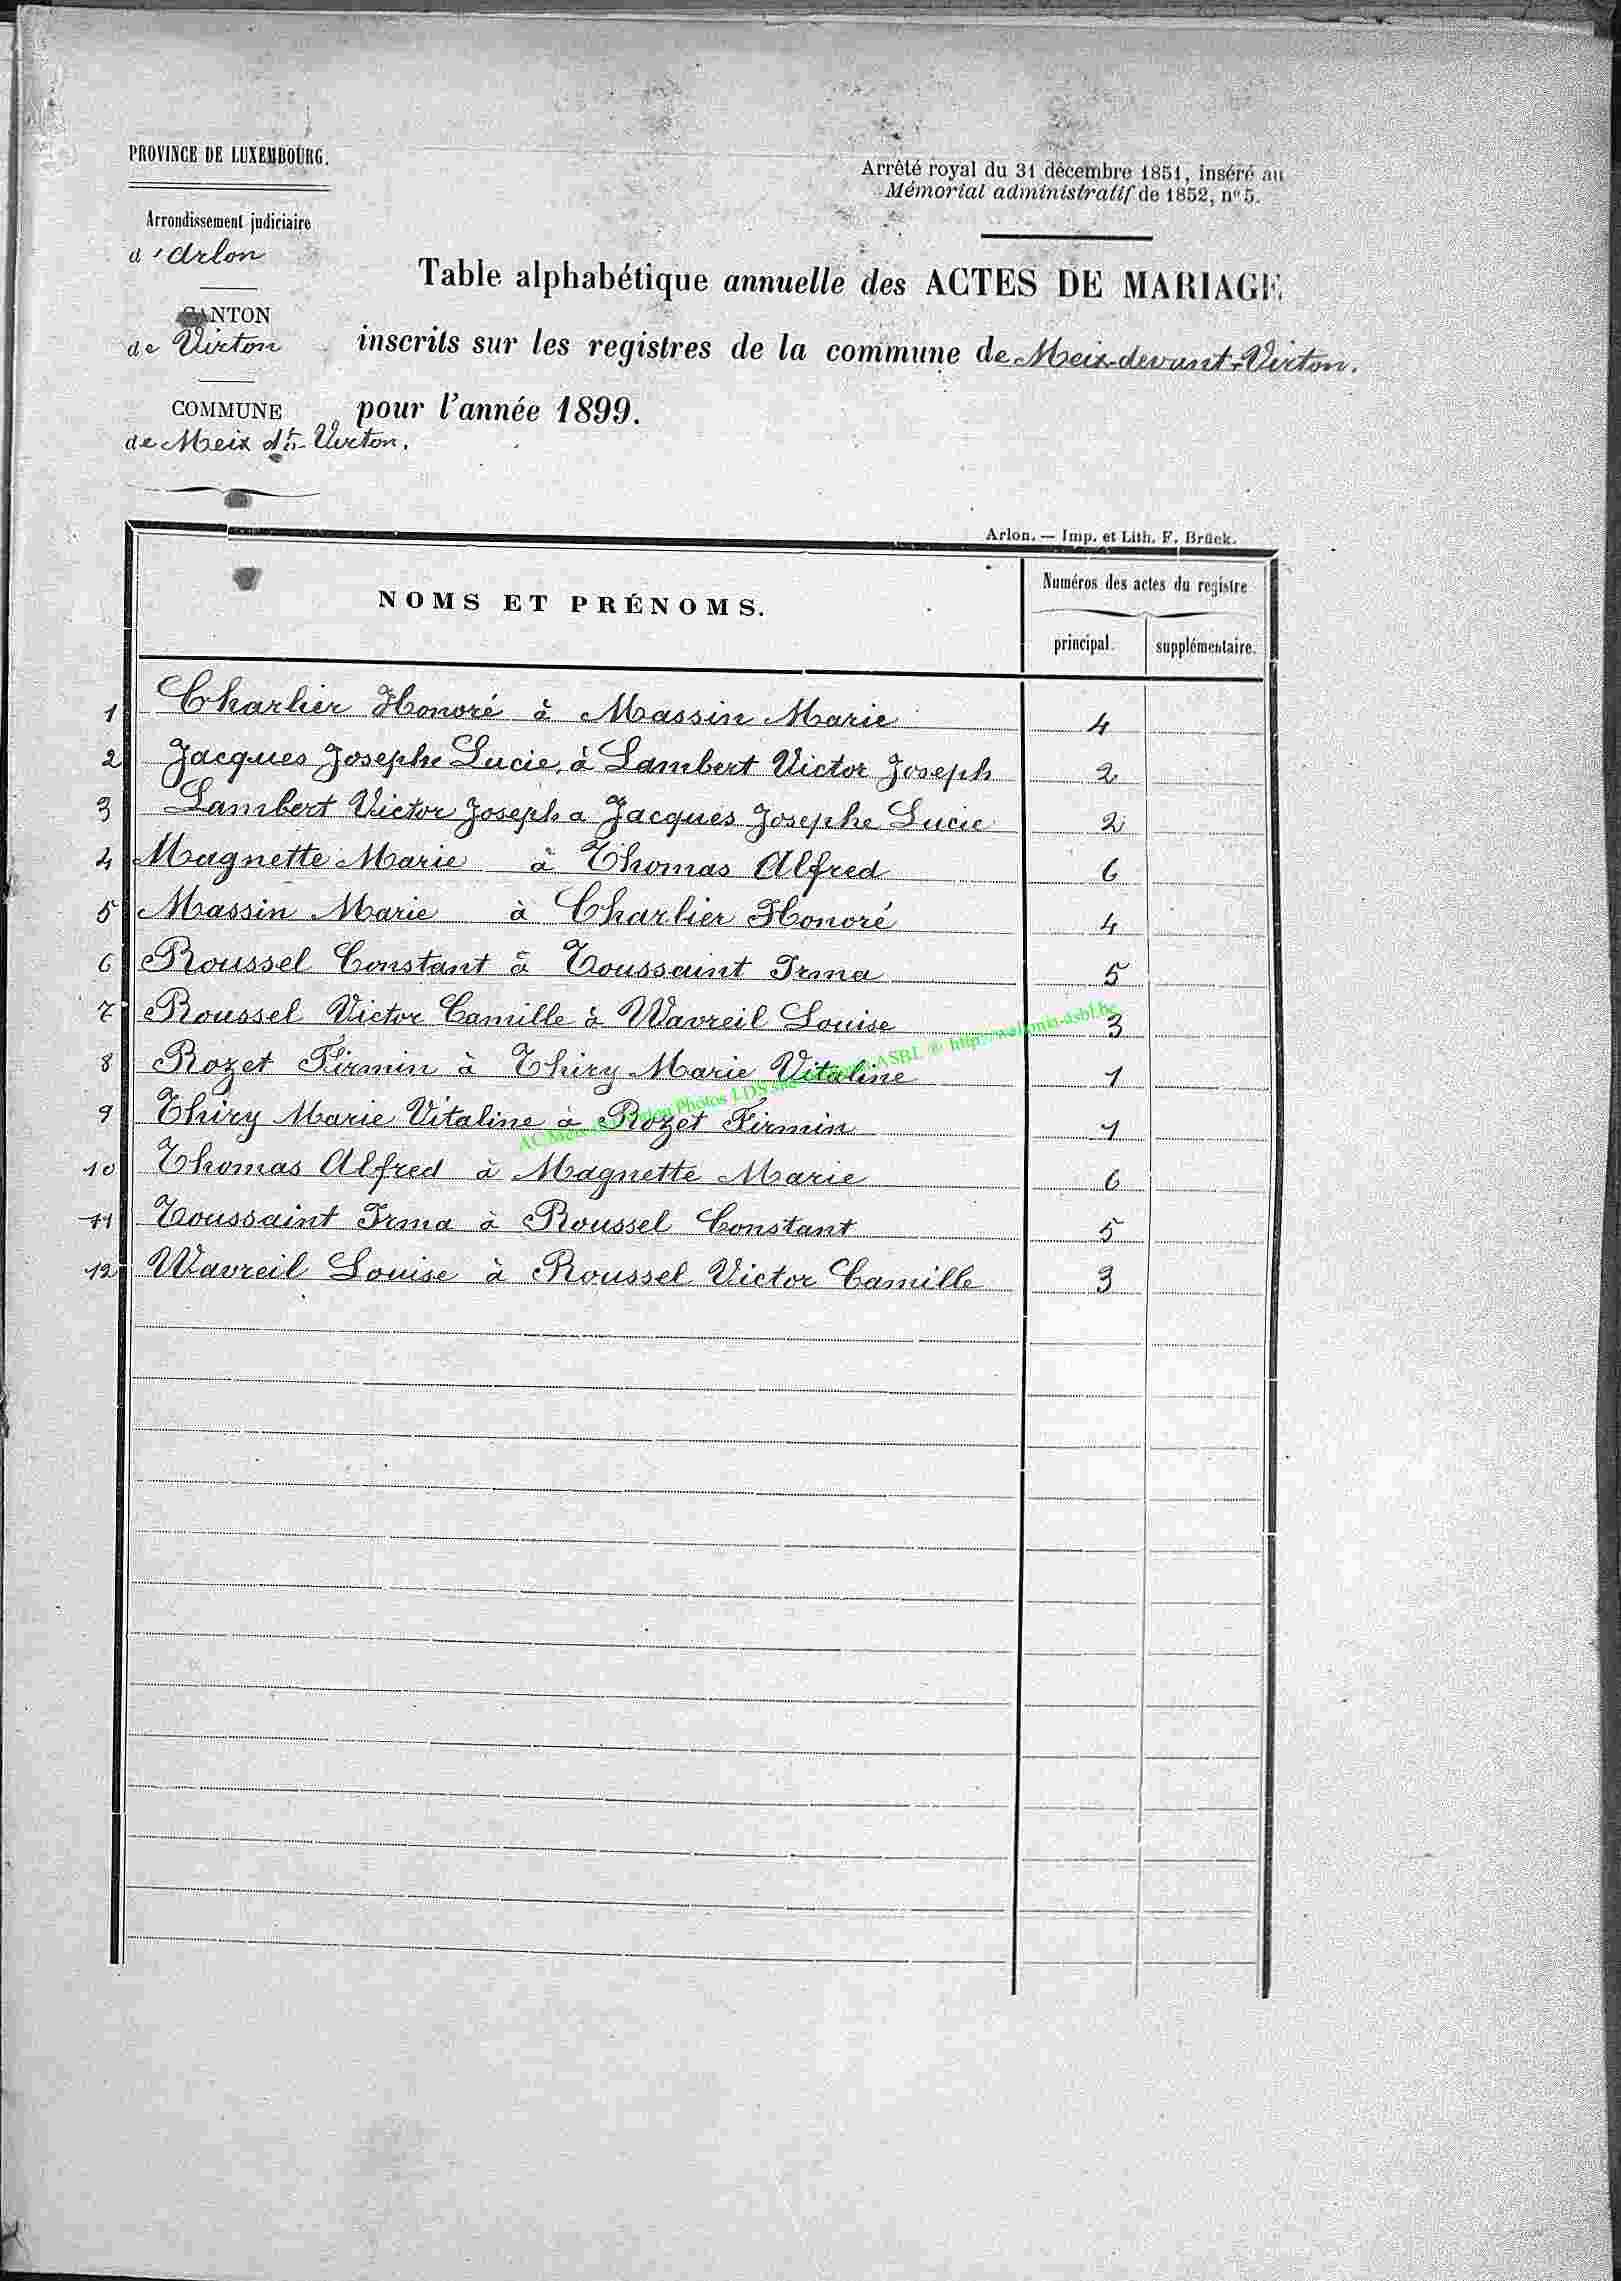 PROVINCE DE LUXEMBOURG.
Arrondissement judiciaire
d'Arlon
CANTON
de Virton
COMMUNE
de Meix dt-Virton.
Arrêté royal du 31 décembre 1851, inséré au
Mémorial administratif de 1852, n° 5.
Table alphabétique annuelle des ACTES DE MARIAGE
inscrits sur les registres de la commune de Meix-devant-Virton.
pour l'année 1899.
Arlon. — Imp. et Lith. F. Brück.
NOMS ET PRÉNOMS.
Numéros des actes du registre
principal. supplémentaire.
1 Charlier Honoré à Massin Marie 4
2 Jacques Josephe Lucie, à Lambert Victor Joseph 2
3 Lambert Victor Joseph a Jacques Josephe Lucie 2
4 Magnette Marie à Thomas Alfred 6
5 Massin Marie à Charlier Honoré 4
6 Roussel Constant à Toussaint Irma 5
7 Roussel Victor Camille à Wavreil Louise 3
8 Rozet Firmin à Thiry Marie Vitaline 1
9 Thiry Marie Vitaline à Rozet Firmin 1
10 Thomas Alfred à Magnette Marie 6
11 Toussaint Irma à Roussel Constant 5
12 Wavreil Louise à Roussel Victor Camille 3
Photos LDS ASBL © http://wallonia-asbl.be